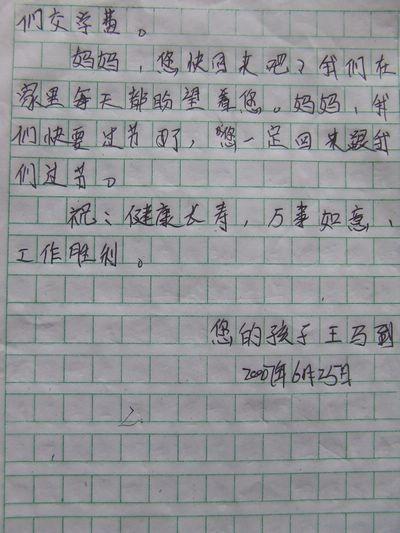 们交学费。
妈妈，您快回来吧？我们在
家里每天都盼望着您。妈妈，我
们快要过节了，您一定回来跟我
们过节。
祝：健康长寿，万事如意、
工作胜利。
您的孩子王马到
2007年6月25日